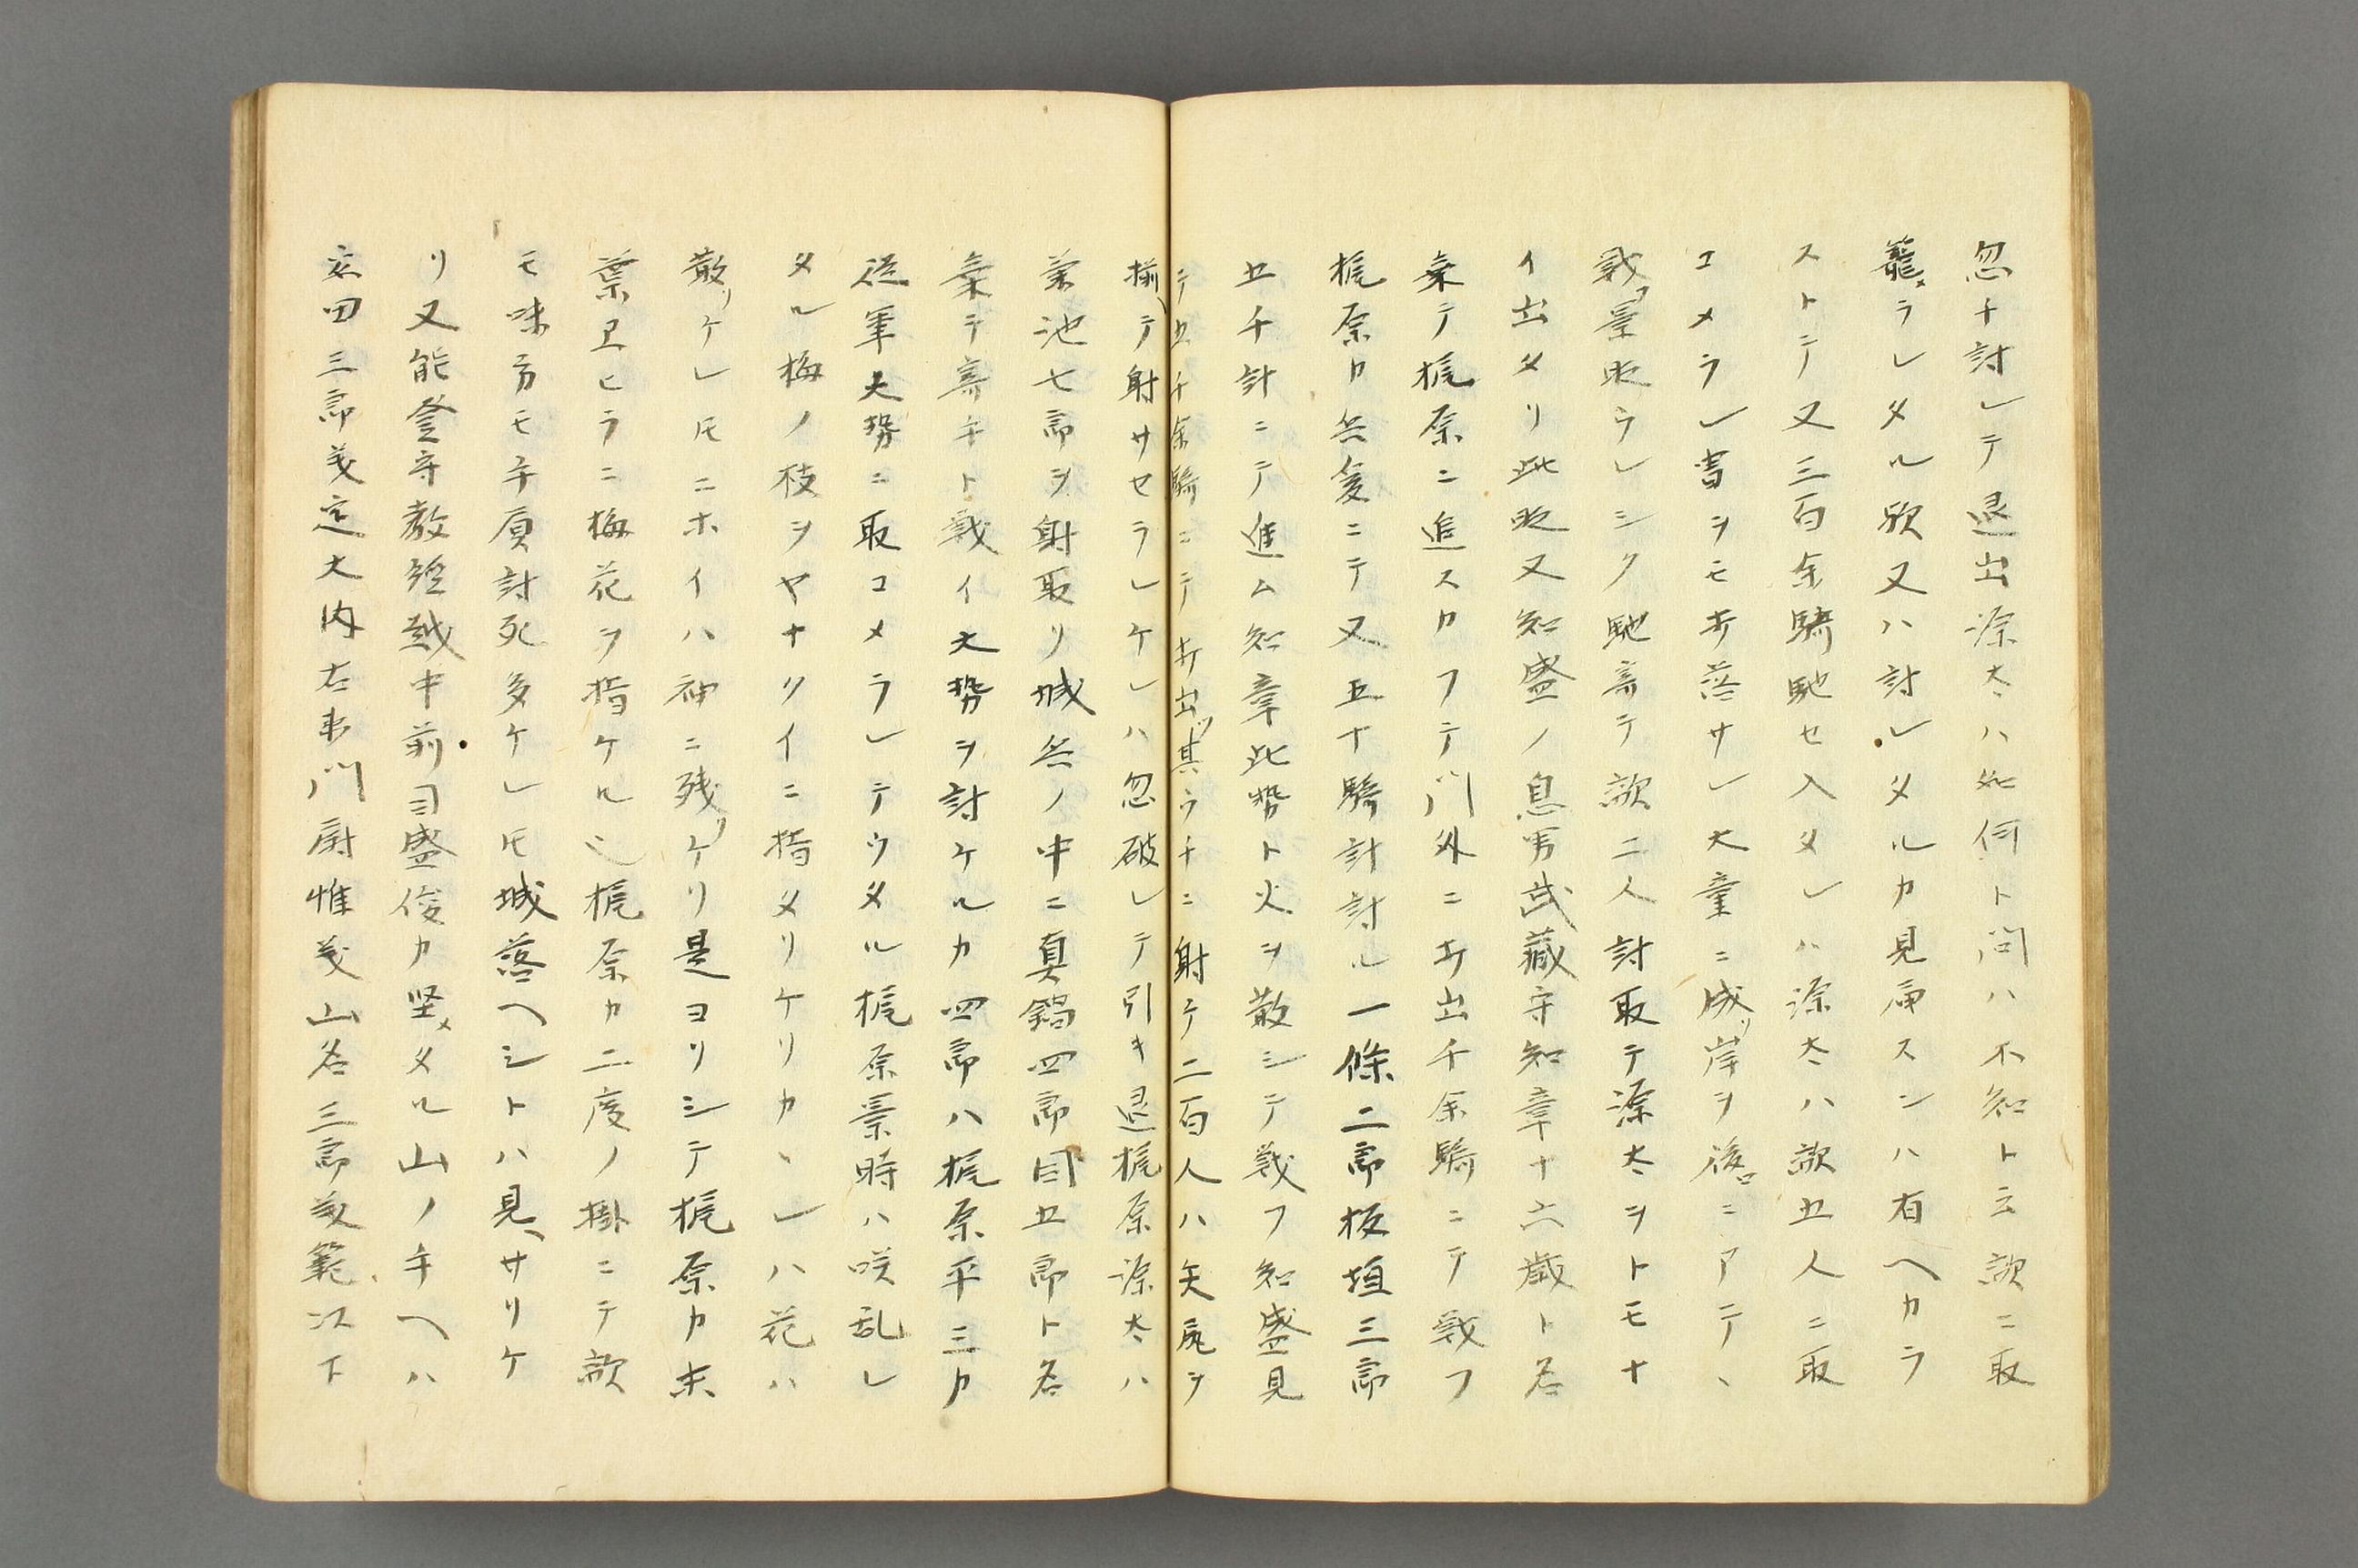 忽ナ討レテ退出源太ハ如何ト問ハ不知ト云敵ニ取
籠メラレタル歟又ハ討レタルカ見届スンハ有ヘカラ
ストテ又三百余騎馳セ入タレハ源太ハ敵五人ニ取
コメラレ胄ヲモ打落サレ大童ニ成リ岸ヲ後ロニアテヽ
戦フ景時ウレシク馳寄テ敵二人討取テ源太ヲトモナ
イ出タリ此時又知盛ノ息男武蔵守知章十六歳ト名
乗テ梶原ニ追スカフテ門外ニ打出千余騎ニテ戦フ
梶原カ兵爰ニテ又五十騎計討ル一條二郎板垣三郎
五千計ニテ進ム知章此勢ト火ヲ散シテ戦フ知盛見
テ五千余騎ニテ打出ツ其ウチニ射テ二百人ハ矢尻ヲ
揃ヘテ射サセラレケレハ忽破レテ引キ退梶原源太ハ
菊池七郎ヲ射取リ城兵ノ中ニ真鍋四郎同五郎ト名
乗テ寄手ト戦イ大勢ヲ討ケルカ四郎ハ梶原平三カ
従軍大勢ニ取コメラレテウタル梶原景時ハ咲乱レ
タル梅ノ枝ヲヤナクイニ指タリケリカヽレハ花ハ
散リケレ𪜈ニホイハ袖ニ残リケリ是ヨリシテ梶原カ末
葉卫ヒラニ梅花ヲ指ケル也梶原カ二度ノ掛ニテ敵
モ味方モ手負討死多ケレ𪜈城落ヘシトハ見ヘサリケ
リ又能登守教経越中前司盛俊カ堅メタル山ノ手ヘハ
安田三郎義定大内右衛門尉惟義山名三郎義範以下